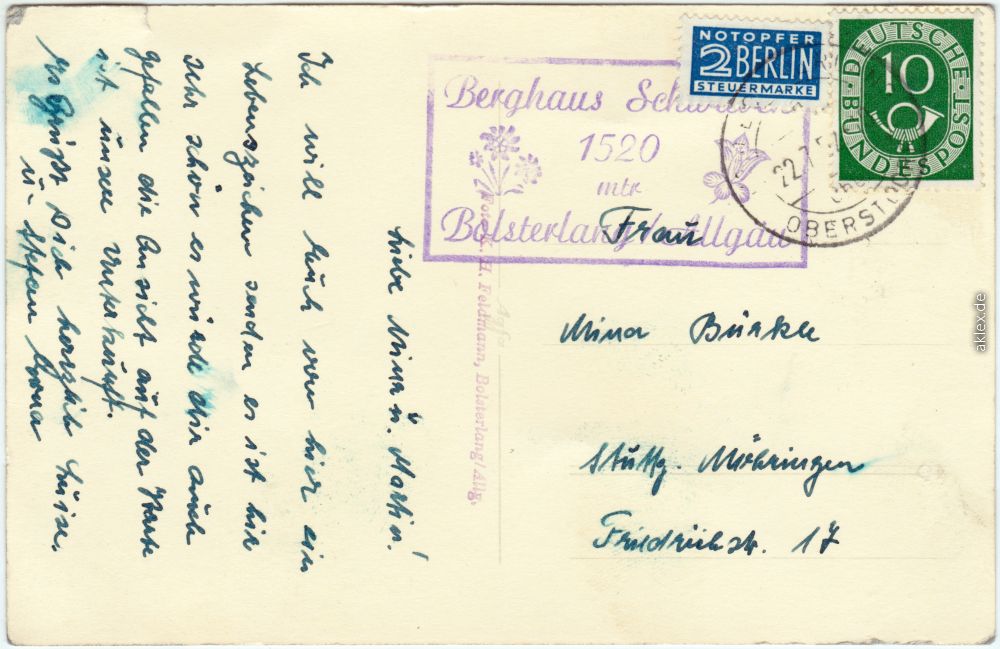 NOTOPFER
2 BERLIN
STEUERMARKE
DEUTSCHE
BUNDESPOST
10
22.7.5
OBERST
Berghaus
1520
mtr
Bolsterlang Allgäu
Frau
Mina Bürkle
Stuttg. Möhringen
Friedrichstr. 17
H. Feldmann, Bolsterlang/Allg.
Agfa
Liebe Mina u. Martin!
Ich will Euch von hier ein
Lebenszeichen senden es ist hier
sehr schön es würde dir auch
gefallen die Ansicht auf der Karte
ist unsere Unterkunft.
Es grüßt Dich herzlich Luise.
u.
aklex.de